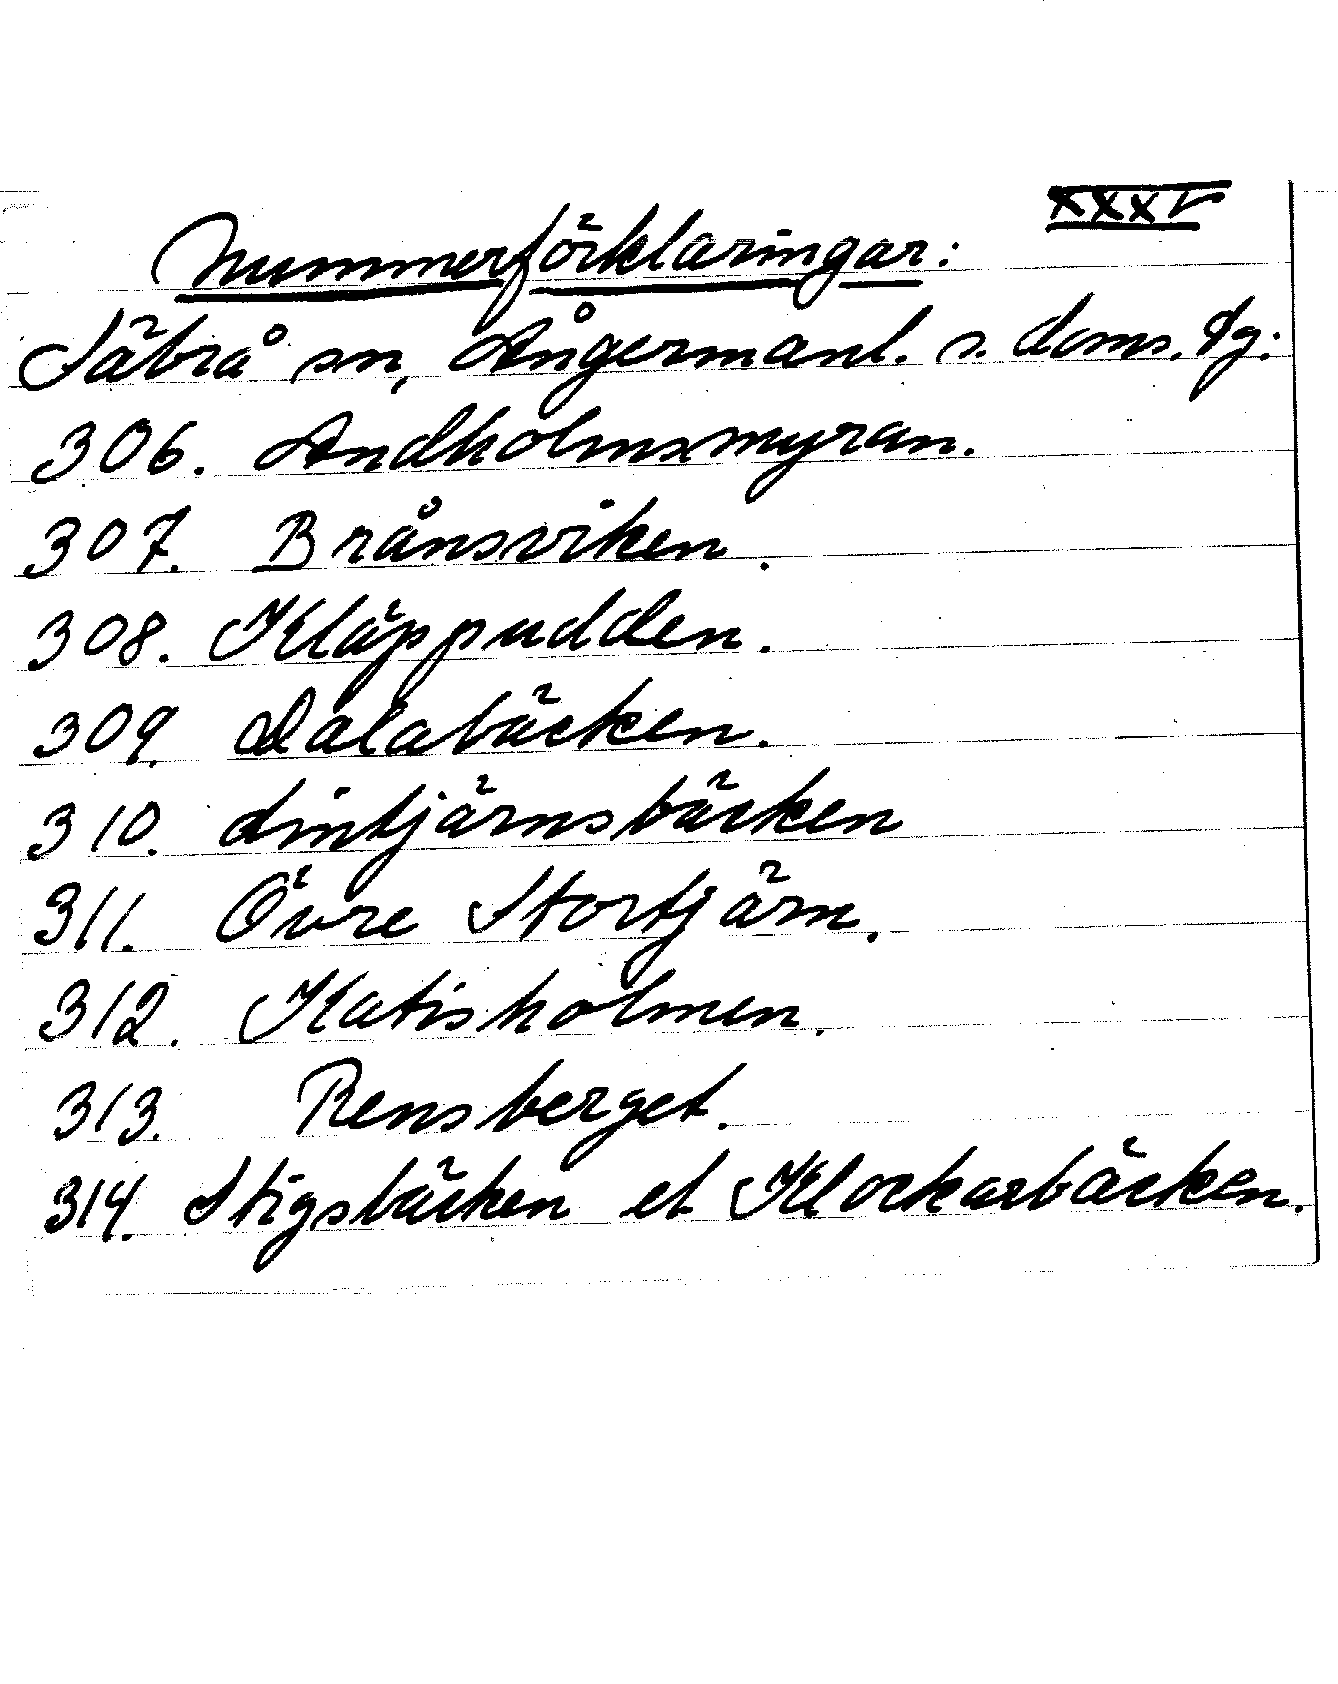 XXXV
Nummerförklaringar:
Säbrå sn, Ångermanl. s. doms. dg:
306. Andholmsmyran.
307. Brånsviken.
308. Kläppudden.
309. Dalabäcken.
310. Lintjärnsbäcken
311. Övre Stortjärn.
312. Katisholmen.
313. Rensberget.
314. Stigsbäcken el Klockarbäcken.